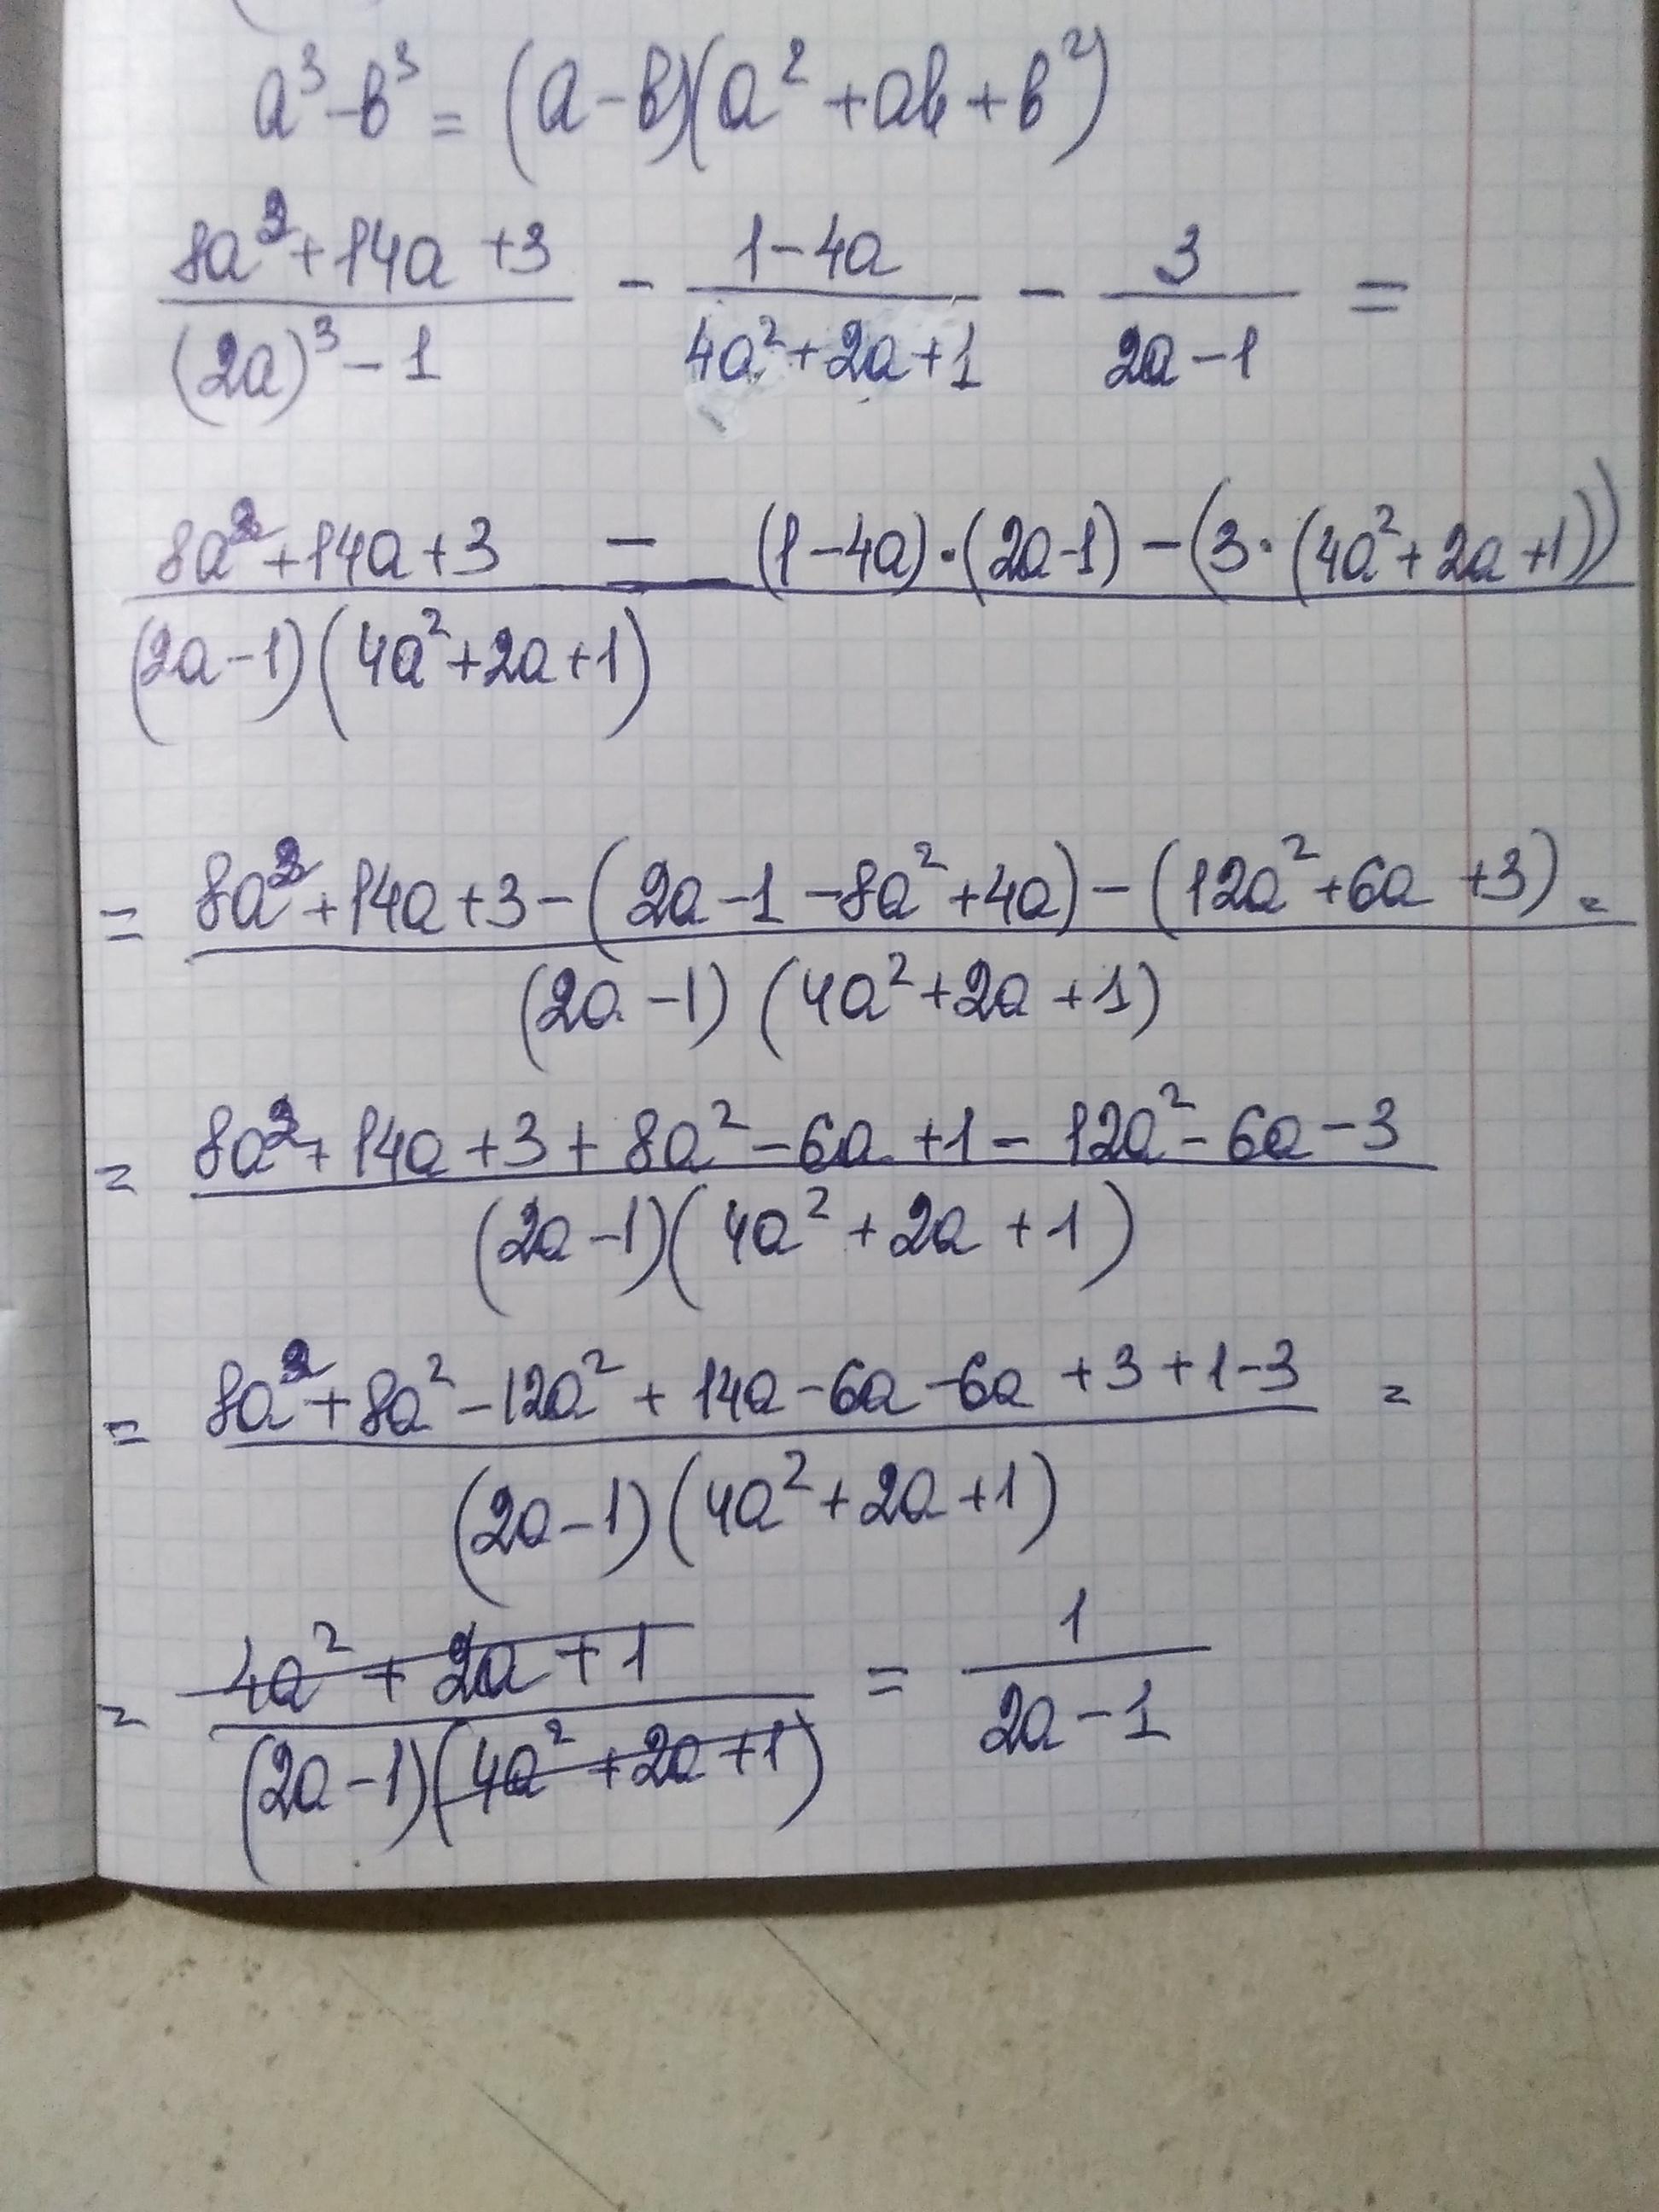 a³-b³ = (a-b)(a²+ab+b²)
(8a²+14a+3)/((2a)³-1) - (1-4a)/(4a²+2a+1) - 3/(2a-1) =
(8a²+14a+3 - (1-4a)·(2a-1)-(3·(4a²+2a+1)))/((2a-1)(4a²+2a+1))
= (8a²+14a+3-(2a-1-8a²+4a)-(12a²+6a+3))/((2a-1)(4a²+2a+1)) =
= (8a²+14a+3+8a²-6a+1-12a²-6a-3)/((2a-1)(4a²+2a+1))
= (8a²+8a²-12a²+14a-6a-6a+3+1-3)/((2a-1)(4a²+2a+1)) =
= (4a²+2a+1)/((2a-1)(4a²+2a+1)) = 1/(2a-1)